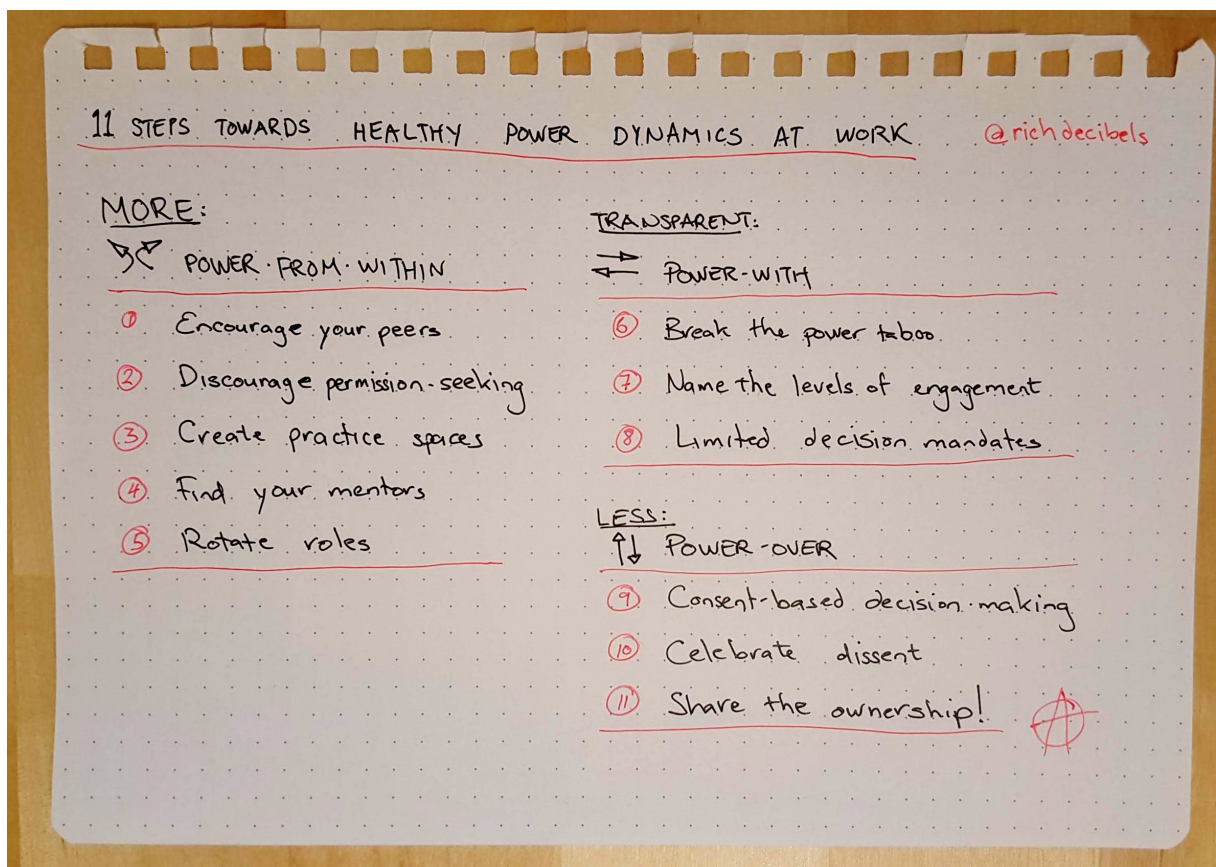 11 STEPS TOWARDS HEALTHY POWER DYNAMICS AT WORK @richdecibels
MORE:
POWER·FROM·WITHIN
1 Encourage your peers
2 Discourage permission-seeking
3 Create practice spaces
4 Find your mentors
5 Rotate roles
TRANSPARENT:
POWER-WITH
6 Break the power taboo
7 Name the levels of engagement
8 Limited decision mandates
LESS:
POWER-OVER
9 Consent-based decision-making
10 Celebrate dissent
11 Share the ownership!